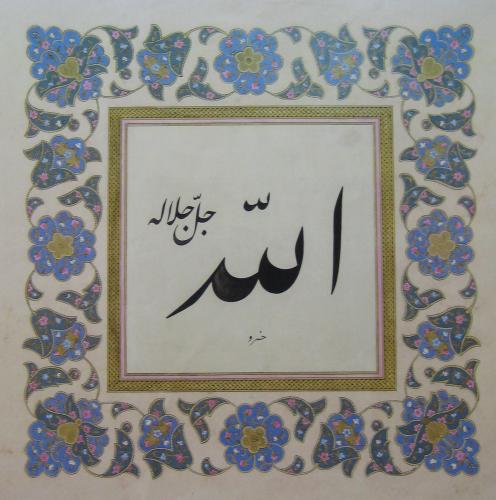 الله جلّ جلاله
خسرو